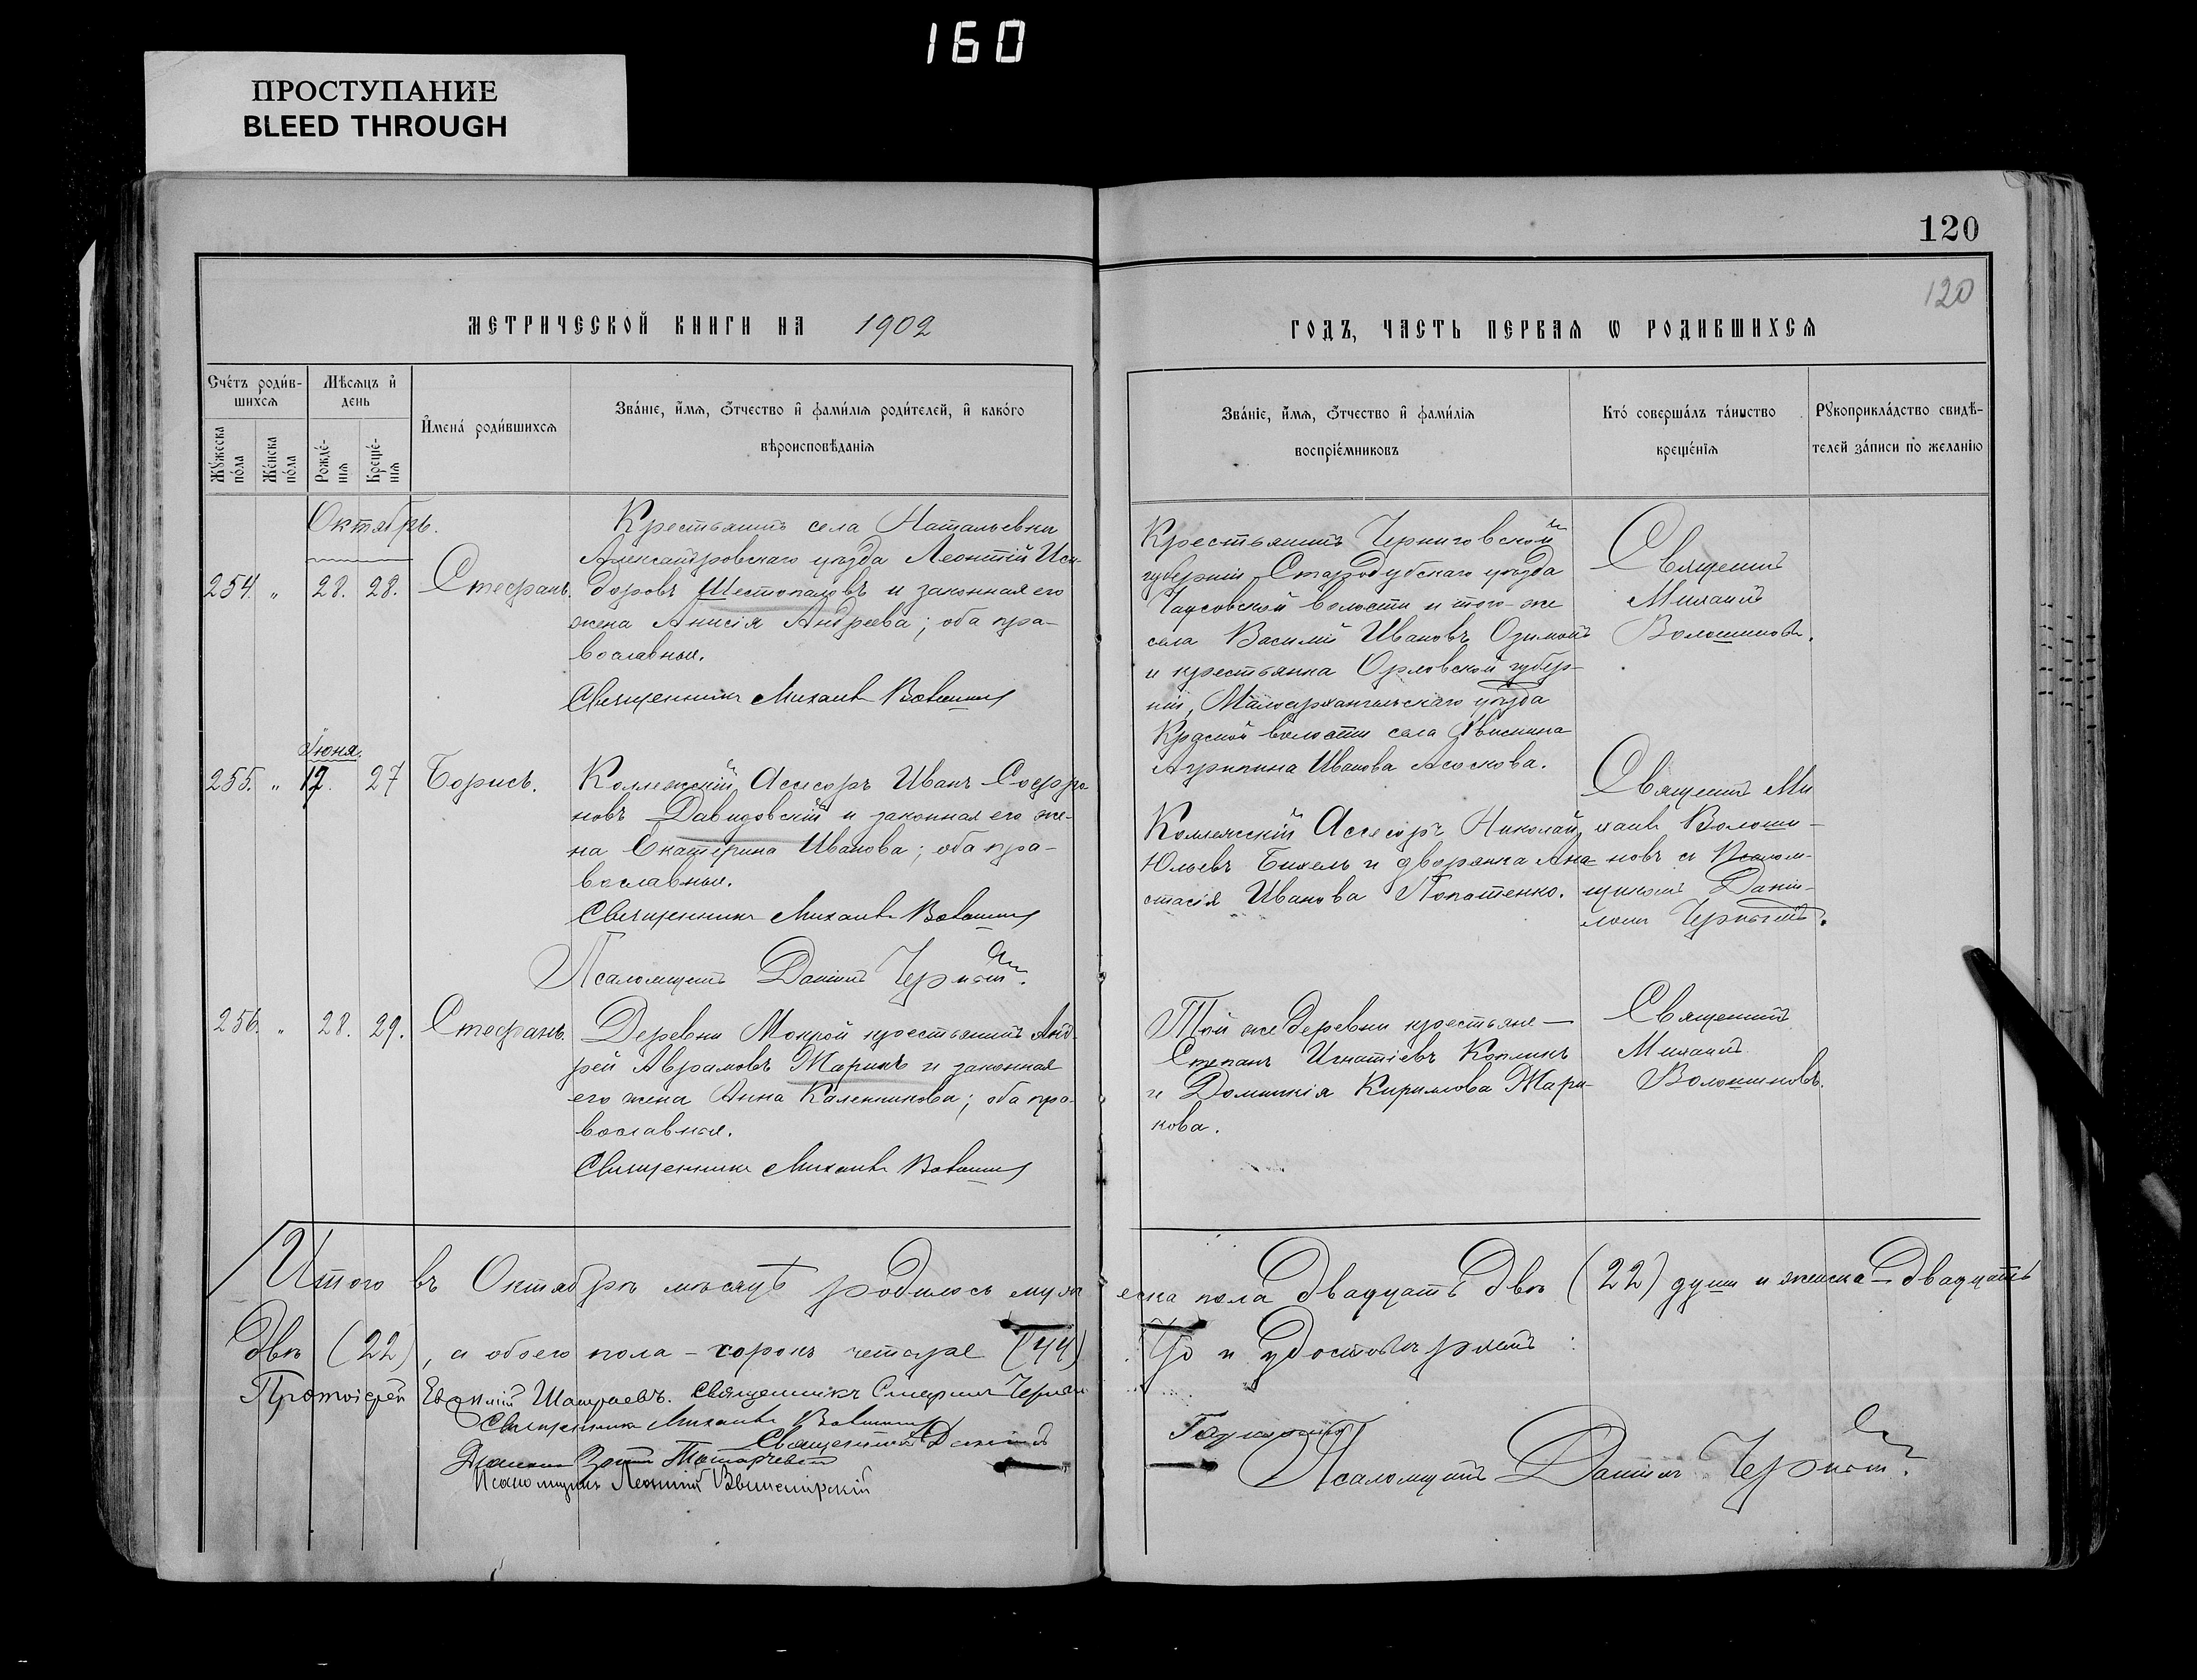 160
ПРОСТУПАНИЕ
BLEED THROUGH
120
120
МЕТРИЧЕСКОЙ КНИГИ НА 1902
ГОДЪ, ЧАСТЬ ПЕРВАЯ Ѡ РОДИВШИХСЯ
Счетъ родив-
шихся
Мѣсяцъ и
день
Мужеска
пола
Женска
пола
Рожде-
нія
Креще-
нія
Имена родившихся
Званіе, имя, отчество и фамилія родителей, и какого
вѣроисповѣданія
Званіе, имя, отчество и фамилія
воспріемниковъ
Кто совершалъ таинство
крещенія
Рукоприкладство свидѣ-
телей записи по желанію
Октябрь.
254. „ 28. 28. Стефанъ.
Крестьянинъ села Натальевки
Александровскаго уѣзда Леонтій Иси-
доровъ Шестопаловъ и законная его
жена Анисія Андреева; оба пра-
вославные.
Священникъ Михаилъ Волошинъ
Крестьянинъ Черниговской
губерніи Стародубскаго уѣзда
Чаусовской волости и того-же
села Василій Ивановъ Озимой
и крестьянка Орловской губер-
ніи, Малоархангельскаго уѣзда
волости села
Агрипина Иванова Асоскова.
Священникъ
Михаилъ
Волошиновъ.
Іюня.
255. „ 12. 27 Борисъ.
Коллежскій Асессоръ Иванъ Софро
новъ Давидовскій и законная его же-
на Екатерина Иванова; оба пра-
вославные.
Священникъ Михаилъ Волошинъ
Псаломщикъ Даніилъ Черный.
Коллежскій Асессоръ Николай
Юльевъ Бихель и дворянка Ана-
стасія Иванова Лопатенко.
Священникъ Ми
хаилъ Волоши-
новъ съ Псалом-
щикомъ Дании-
ломъ Чернымъ.
256. „ 28. 29. Стефанъ.
Деревни Мокрой крестьянинъ Анд-
рей Аврамовъ Жарикъ и законная
его жена Анна Каленникова; оба пра-
вославные.
Священникъ Михаилъ Волошинъ
Той же деревни крестьяне —
Степанъ Игнатіевъ Копликъ
и Домникія Кирилова Жари-
кова.
Священникъ
Михаилъ
Волошиновъ.
Итого въ Октябрѣ мѣсяцѣ родилось муж еска пола двадцать двѣ (22) души и женска – двадцать
двѣ (22), а обоего пола – сорокъ четыре (44).
Что и удостовѣряемъ:
Протоіерей Евѳимій Шатраевъ. Священникъ
Священникъ Михаилъ Волошинъ
Священникъ
Діаконъ
Псаломщикъ Леонтій
Псаломщикъ Даніилъ Черный.